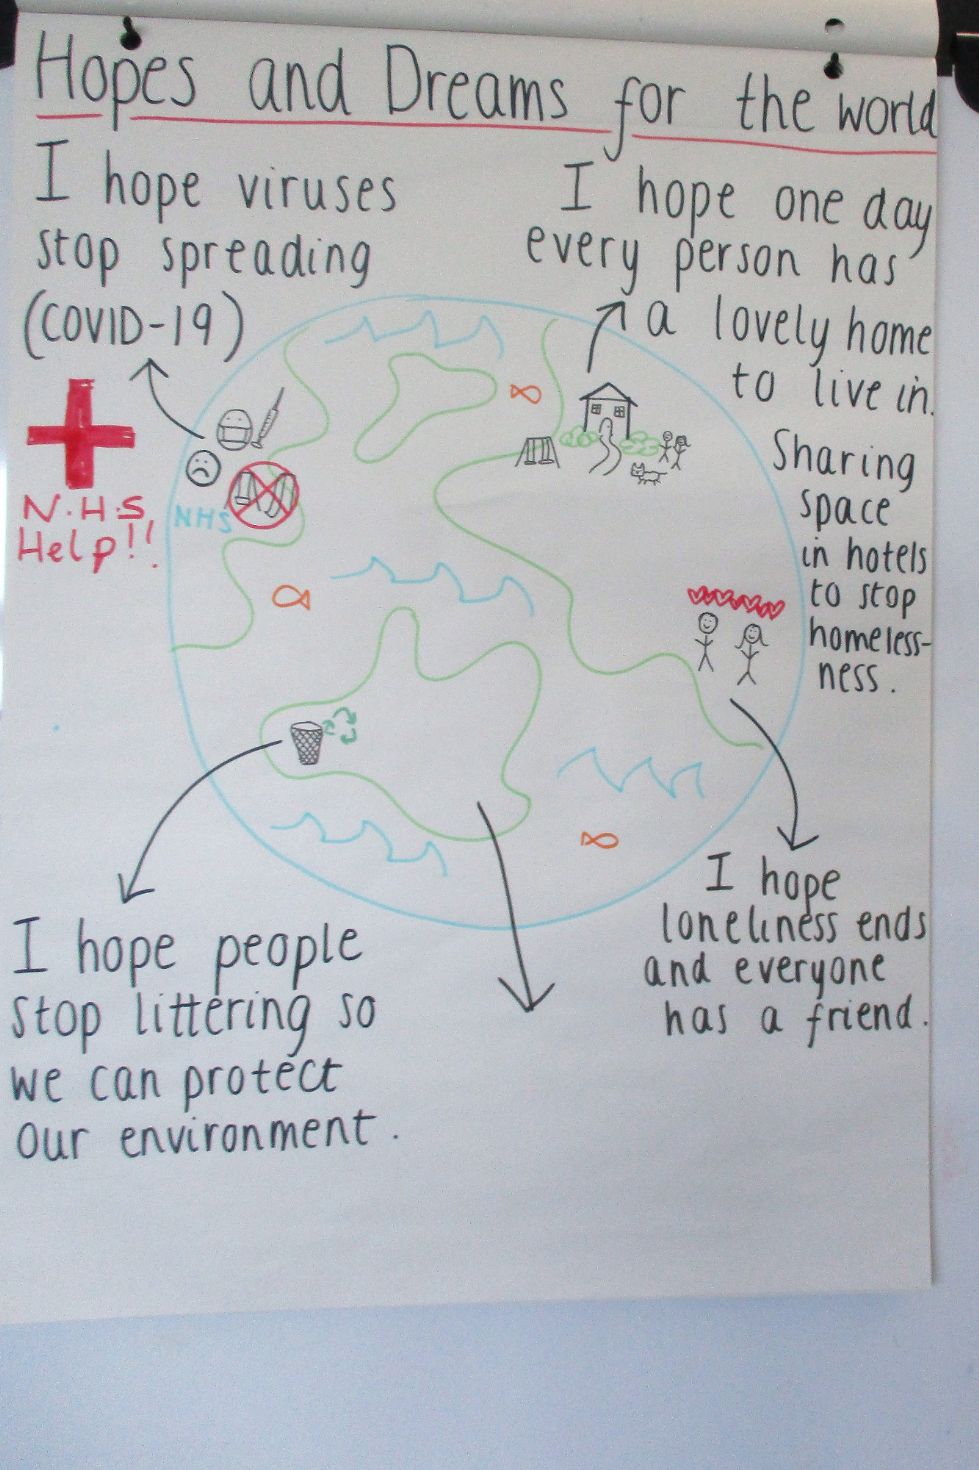 Hopes and Dreams for the world
I hope viruses
stop spreading
(COVID-19)
N.H.S
Help!!
NHS
I hope one day
every person has
a lovely home
to live in.
Sharing
space
in hotels
to stop
homeless-
ness.
I hope
loneliness ends
and everyone
has a friend.
I hope people
stop littering so
we can protect
our environment.